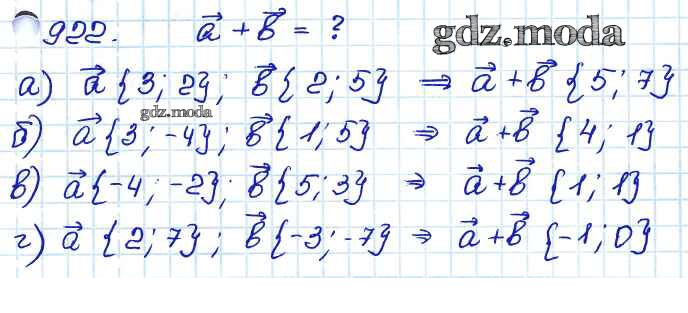 922. a⃗ + b⃗ = ?
gdz.moda
а) a⃗ {3; 2}; b⃗ {2; 5} ⇒ a⃗ + b⃗ {5; 7}
gdz.moda
б) a⃗ {3; -4}; b⃗ {1; 5} ⇒ a⃗ + b⃗ {4; 1}
в) a⃗ {-4; -2}; b⃗ {5; 3} ⇒ a⃗ + b⃗ {1; 1}
г) a⃗ {2; 7}; b⃗ {-3; -7} ⇒ a⃗ + b⃗ {-1; 0}